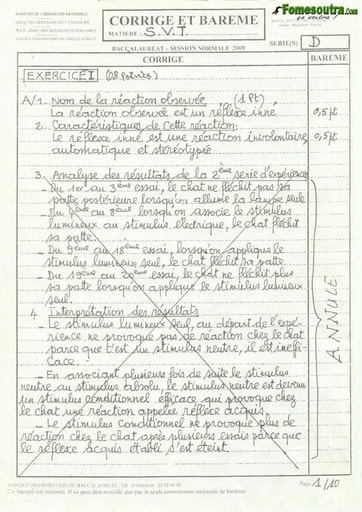 MINISTERE DE L'EDUCATION NATIONALE
CORRIGE ET BAREME
Fomesoutra.com
ça soutra !
MATIERE : S.V.T.
BACCALAUREAT - SESSION NORMALE 2009
SERIE(S) D
CORRIGE
BAREME
EXERCICE I (08 points)
A/1. Nom de la réaction observée (1 Pt)
La réaction observée est un réflexe inné.
0,5pt
2. Caractéristiques de cette réaction:
Le réflexe inné est une réaction involontaire,
0,5pt
automatique et stéréotypée
3. Analyse des résultats de la 2ème série d'expérience
- Du 1er au 3ème essai, le chat ne fléchit pas sa
patte postérieure lorsqu'on allume la lampe seule
- Du 4ème au 8ème lorsqu'on associe le stimulus
lumineux au stimulus électrique, le chat fléchit
sa patte.
- Du 9ème au 18ème essai, lorsqu'on applique le
stimulus lumineux seul, le chat fléchit sa patte
- Du 19ème au essai, le chat ne fléchit plus
sa patte lorsqu'on applique le stimulus lumineux
seul.
ANNULE
4. Interprétation des résultats
- Le stimulus lumineux seul, au départ de l'expé-
rience ne provoque pas de réaction chez le chat
parce que c'est un stimulus neutre, il est ineffi-
cace.
- En associant plusieurs fois de suite le stimulus
neutre au stimulus absolu, le stimulus neutre est devenu
un stimulus conditionnel efficace qui provoque chez
le chat une réaction appelée réflexe acquis.
- Le stimulus conditionnel ne provoque plus de
réaction chez le chat après plusieurs essais parce que
le réflexe acquis établi s'est éteint.
Page 1/10
Ce barème est national. Il ne peut être modifié que par la seule commission nationale de barème.